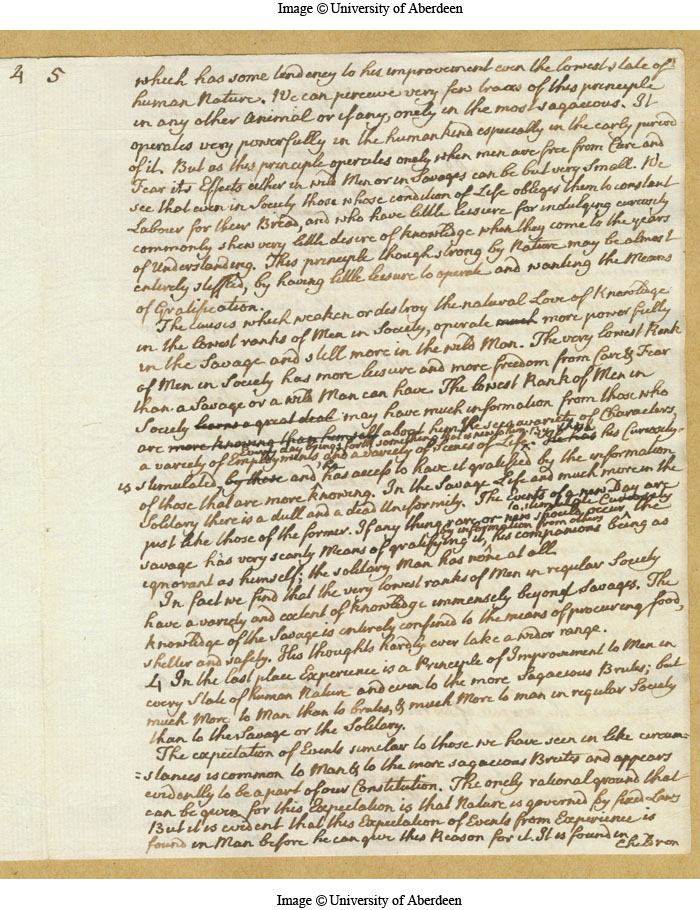 Image © University of Aberdeen
4 5
which has some tendency to his improvement even the lowest state of
human Nature. We can perceive very few traces of this principle
in any other Animal or if any, onely in the most sagacious. It
operates very powerfully in the human kind especially in the early period
of it. But as this principle operates onely when men are free from Care and
Fear its Effects either in wild Men or in Savages can be but very Small. We
see that even in Society those whose condition of Life obleges them to constant
Labour for their Bread, and who have little leisure for indulging curiosity
commonly shew very little desire of knowledge when they come to the years
of Understanding. This principle though strong by Nature may be almost
entirely stiffled, by having little leisure to operate and wanting the Means
of Gratification.
The causes which weaken or destroy the natural Love of Knowledge
in the lowest ranks of Men in Society, operate much more powerfully
in the Savage and still more in the wild Man. The very lowest Rank
of Men in Society has more leisure and more freedom from Care & Fear
than a Savage or a wild Man can have. The lowest Rank of Men in
Society learns a great deal may have much information from those who
are more knowing than himself about him. He sees a variety of Characters,
a variety of Employments and a variety of Scenes of Life.
Every day brings forth something that is new
his Curiosity
is stimulated by these and has access to have it gratified by the information
of those that are more knowing. In the Savage Life and much more in the
Solitary there is a dull and a dead Uniformity. The Events of a new Day are
just like those of the former. If any thing rare or new should occur the
to stimulate Curiosity
savage has very scanty Means of gratifying it, his companions being as
by information from others
ignorant as himself; the solitary Man has none at all.
In fact we find that the very lowest ranks of Men in regular Society
have a variety and extent of knowledge immensely beyond Savages. The
knowledge of the Savage is entirely confined to the means of procuring food,
shelter and safety. His thoughts hardly ever take a wider range.
4 In the last place Experience is a Principle of Improvement to Men in
every State of human Nature and even to the more Sagacious Brutes; but
much More to Man than to brutes, & much More to man in regular Society
than to the Savage or the Solitary.
The expectation of Events similar to those we have seen in like circum=
=stances is common to Man & to the more sagacious Brutes and appears
evidently to be a part of our Constitution. The onely rational ground that
can be given for this Expectation is that Nature is governed by fixed Laws
But it is evident that this Expectation of Events from Experience is
found in Man before he can give this Reason for it. It is found in
Children
Image © University of Aberdeen